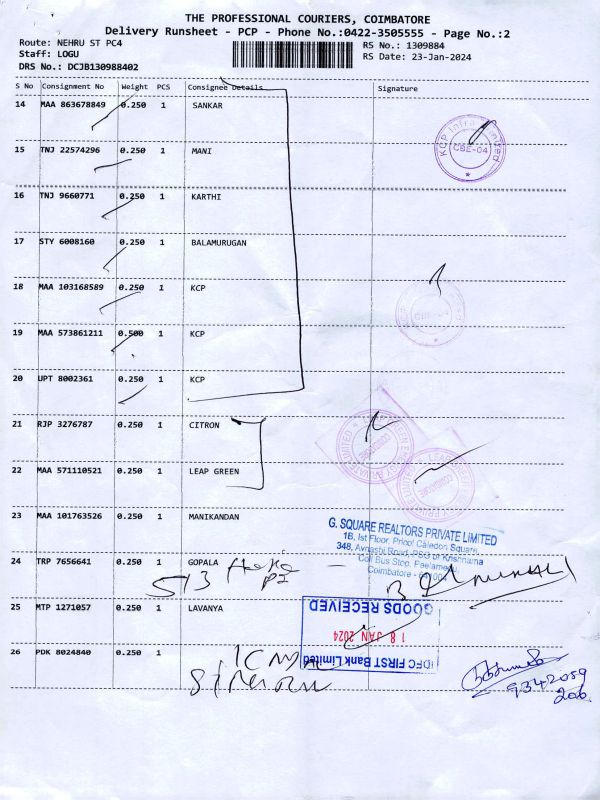 THE PROFESSIONAL COURIERS, COIMBATORE
Delivery Runsheet - PCP - Phone No.:0422-3505555 - Page No.:2
Route: NEHRU ST PC4
RS No.: 1309884
Staff: LOGU
RS Date: 23-Jan-2024
DRS No.: DCJB130988402
S No Consignment No Weight PCS Consignee Details Signature
14 MAA 863678849 0.250 1 SANKAR
KCP Infra Limited
CBE-04
15 TNJ 22574296 0.250 1 MANI
16 TNJ 9660771 0.250 1 KARTHI
17 STY 6008160 0.250 1 BALAMURUGAN
18 MAA 103168589 0.250 1 KCP
19 MAA 573861211 0.500 1 KCP
20 UPT 8002361 0.250 1 KCP
21 RJP 3276787 0.250 1 CITRON
22 MAA 571110521 0.250 1 LEAP GREEN
23 MAA 101763526 0.250 1 MANIKANDAN
G. SQUARE REALTORS PRIVATE LIMITED
1B, Ist Floor, Proof Caledon Square,
348, Avnashi Road, PSG Krishnama
Coll Bus Stop, Peelamedu
Coimbatore - 641004
24 TRP 7656641 0.250 1 GOPALA
513
25 MTP 1271057 0.250 1 LAVANYA
GOODS RECEIVED
18 JAN 2024
IDFC FIRST Bank Limited
26 PDK 8024840 0.250 1
9342059
206